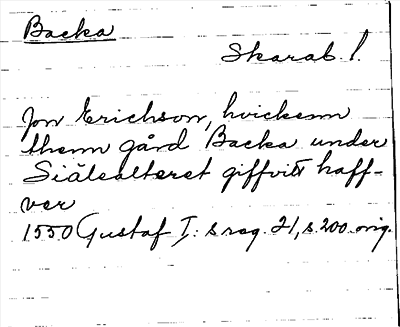 Backa
Skarab. l.
Jon Erichson, hvickenn
thenn gård Backa under
Siälealteret giffvitt haff-
ver
1550 Gustaf I: s reg. 21, s. 200. orig.